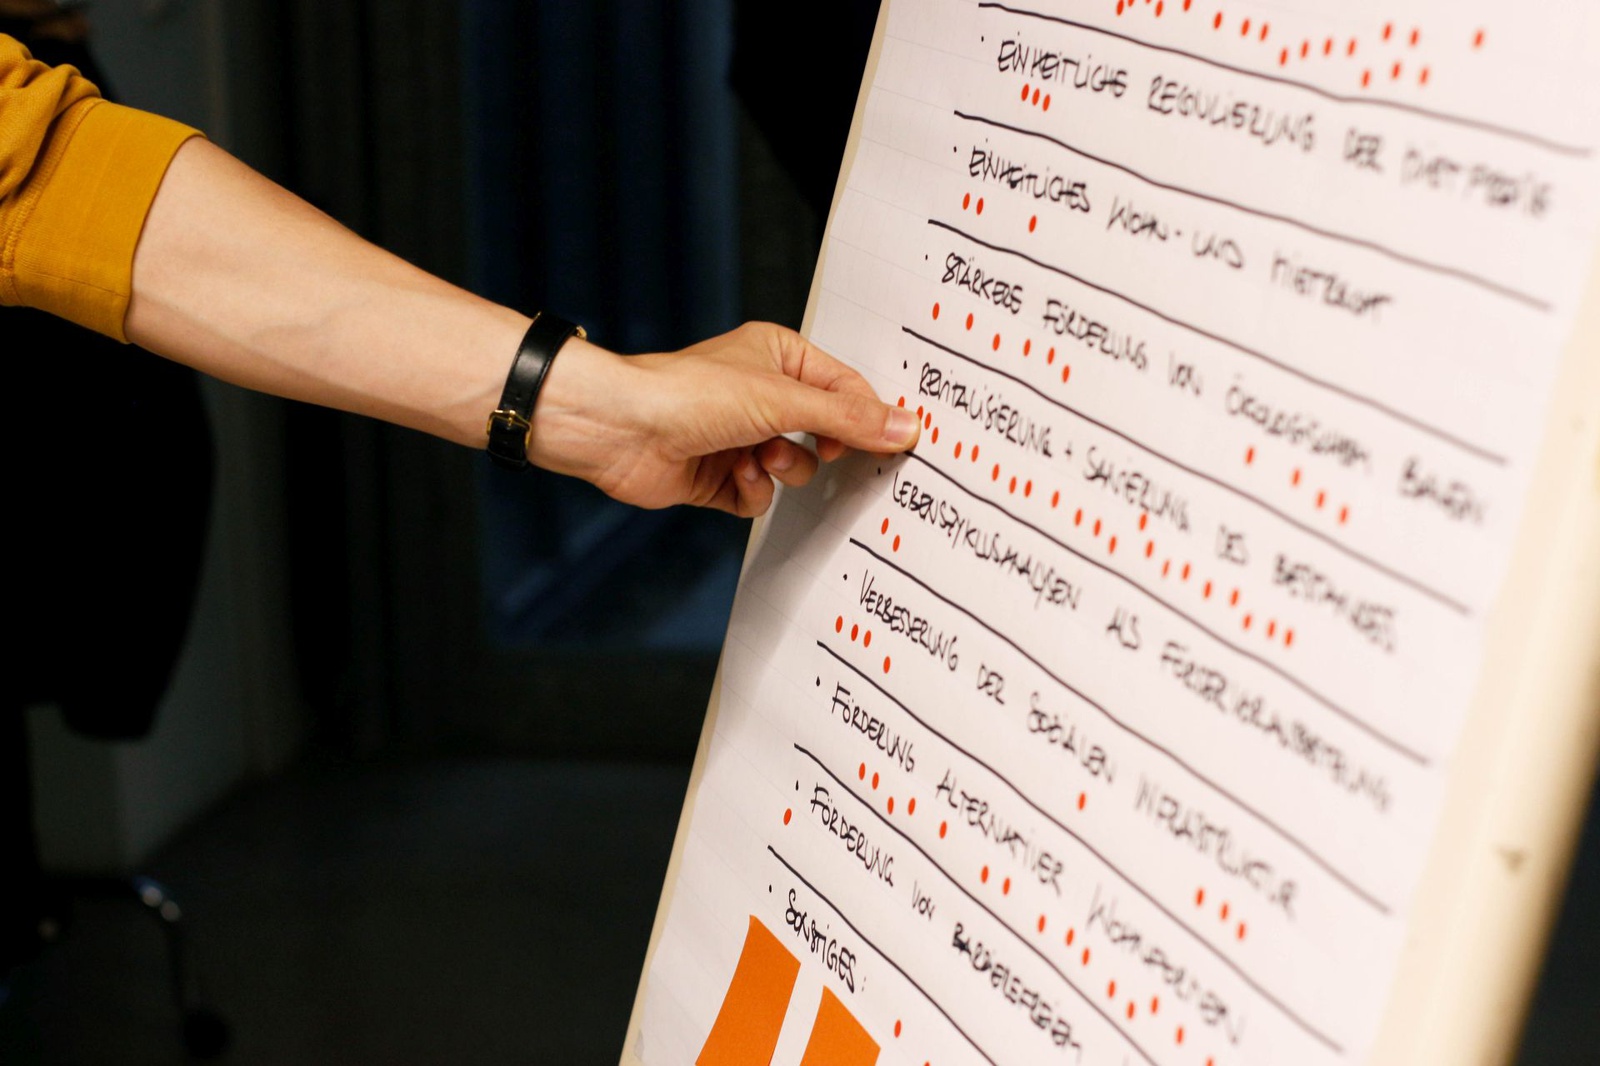 • EINHEITLICHE REGULIERUNG DER DIETPREISE
• EINHEITLICHES WOHN- UND MIETRECHT
• STÄRKERE FÖRDERUNG VON ÖKOLOGISCHEM BAUEN
• REVITALISIERUNG + SANIERUNG DES BESTANDES
• LEBENSZYKLUSANALYSEN ALS FÖRDERVORAUSSETZUNG
• VERBESSERUNG DER SOZIALEN INFRASTRUKTUR
• FÖRDERUNG ALTERNATIVER WOHNFORMEN
• FÖRDERUNG VON BARRIEREFREIEM
• SONSTIGES: